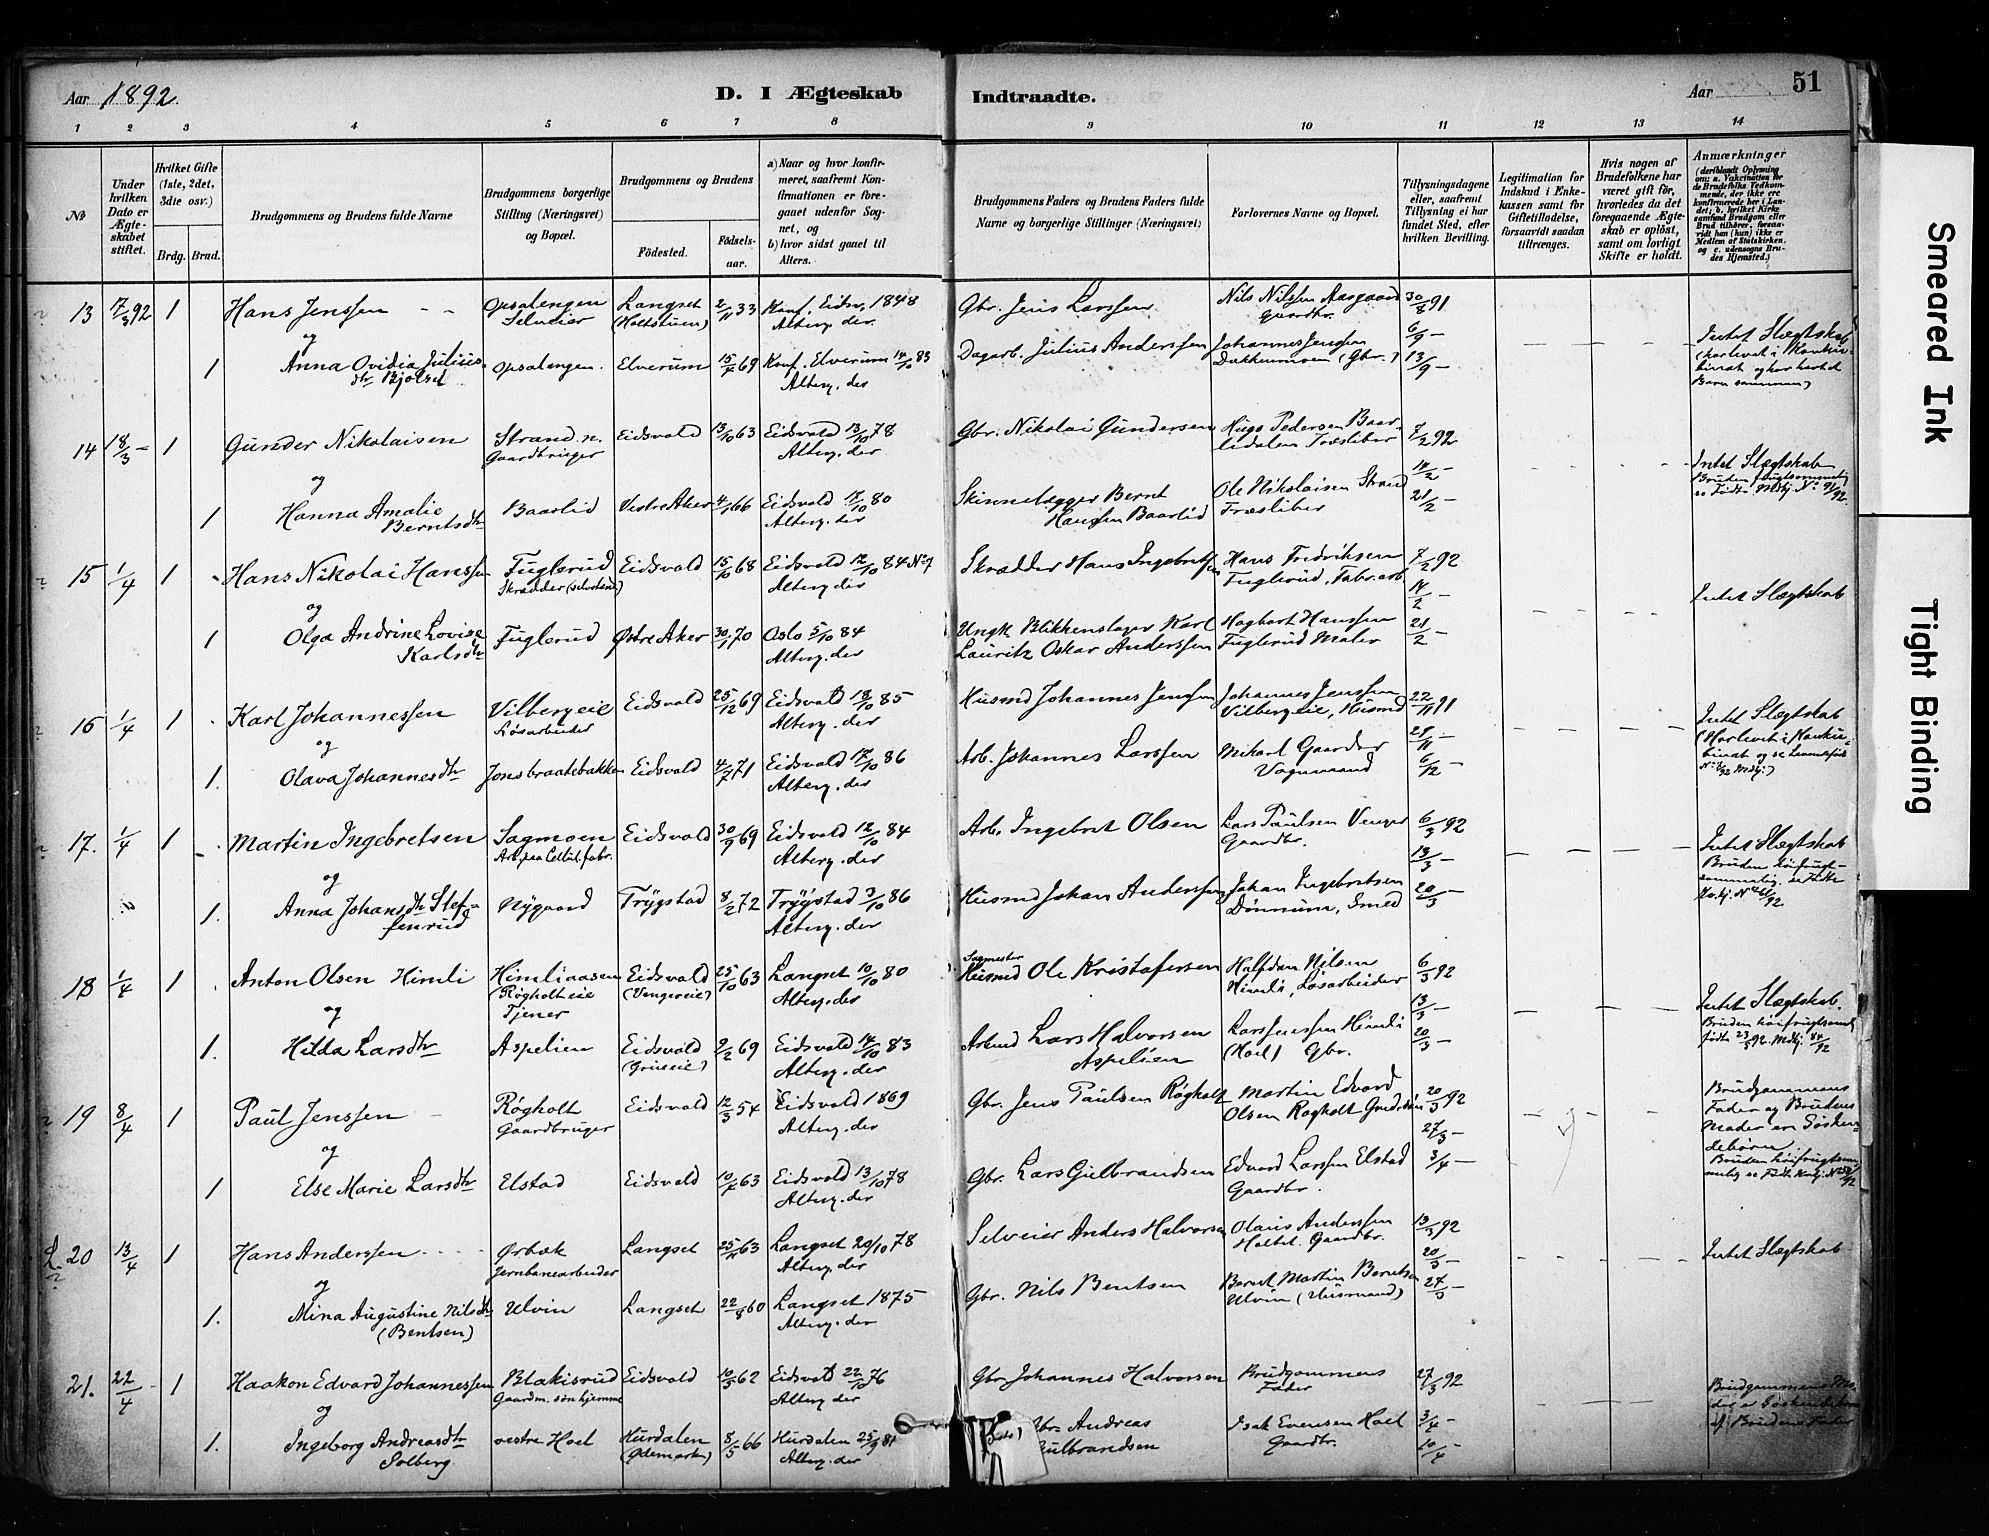 Aar 1892.
D. I Ægteskab
Indtraadte.
Aar
51
1 2 3 4 5 6 7 8 9 10 11 12 13 14
No
Under hvilken Dato er Ægteskabet stiftet.
Hvilket Gifte (1ste, 2det, 3die osv.)
Brdg. Brud.
Brudgommens og Brudens fulde Navne
Brudgommens borgerlige Stilling (Næringsvei) og Bopæl.
Brudgommens og Brudens
Fødested.
Fødselsaar.
a) Naar og hvor konfirmeret, saafremt Konfirmationen er foregaaet udenfor Sognet, og
b) hvor sidst gaaet til Alters.
Brudgommens Faders og Brudens Faders fulde Navne og borgerlige Stillinger (Næringsvei)
Forlovernes Navne og Bopæl.
Tillysningsdagene eller, saafremt Tillysning ei har fundet Sted, efter hvilken Bevilling.
Legitimation for Indskud i Enkekassen samt for Giftetilladelse, forsaavidt saadan tiltrænges.
Hvis nogen af Brudefolkene har været gift før, hvorledes da det foregaaende Ægteskab er opløst, samt om lovligt Skifte er holdt.
Anmærkninger
(deriblandt Oplysning om: a. Vakcination for de Brudefolks Vedkommende, der ikke ere konfirmerede her i Landet; b. hvilket Kirkesamfund Brudgom eller Brud tilhører, forsaavidt han (hun) ikke er Medlem af Statskirken, og c. udensogns Brudes Hjemsted.)
13 17/3 92 1 Hans Jenssen Opsalengen Selveier Langset (Holtstuen) 2/11 33 Konf. Eidsv. 1848 Alterg. der Gbr. Jens Larssen Nils Nilssen Aasgaard Gaardbr. 30/8 91
og
1 Anna Ovidia Juliusdtr Bjølset Opsalengen. Elverum 15/4 69 Konf. Elverum 14/10 83 Alterg. der Dagarb. Julius Anderssen Johannes Jenssen (Gbr.) 6/9 – 13/9 – Intet Slægtskab (har levet i Konkubinat og har havt et Barn sammen)
14 18/3 – 1 Gunder Nikolaisen Strand n. Gaardbruger Eidsvold 13/10 63 Eidsvold 13/10 78 Alterg. der Gbr. Nikolai Gundersen Hugo Pedersen Baarlidalen Træsliber 7/2 92
og
1 Hanna Amalie Berntsdtr Baarlid Vestre Aker 4/1 66 Eidsvold 17/10 80 Alterg. der Bernt Hanssen Baarlid Ole Nikolaisen Strand Træsliber 14/2 – 21/2 – Intet Slægtskab Bruden frugtsommelig
15 1/4 1 Hans Nikolai Hanssen Fuglerud Skrædder Eidsvold 15/10 68 Eidsvold 12/10 84 No 7 Alterg. der Skrædder Hans Ingebretsen Hans Fredriksen Fuglerud, Fabr. arb. 7/2 92 14/2 –
og
1 Olga Andrine Lovise Karlsdtr Fuglerud Østre Aker 30/1 70 Oslo 5/10 84 Alterg. der Ungk. Blikkenslager Karl Lauritz Oskar Anderssen Hagbart Hanssen Fuglerud Maler 21/2 – Intet Slægtskab
16 1/4 1 Karl Johannessen Vilbergeie Løsarbeider Eidsvold 25/12 69 Eidsvold 18/10 85 Alterg. der Husmd Johannes Jenssen Johannes Jenssen Vilbergeie, Husmd 22/11 91
og
1. Olava Johannesdtr Jonsbraatebakken Eidsvold 4/7 71 Eidsvold 17/10 86 Alterg. der Arb. Johannes Larssen Mikael Gaarder Vognmand 29/11 – 6/12 – Intet Slægtskab (Har levet i Konkubinat
17. 1/4 1 Martin Ingebretsen Sagmoen Arb. paa Cellul. fabr. Eidsvold 30/9 69 Eidsvold 12/10 84 Alterg. der Arb. Ingebret Olsen Lars Paulsen Venger Gaardbr. 6/3 92 13/3 –
og
1. Anna Johansdtr Steffenrud Nygaard Trygstad 8/2 72 Trygstad 3/10 86 Alterg. der Husmd Johan Anderssen Johan Ingebretsen Dønnum, Smed 20/3 – Intet Slægtskab Bruden høifrugtsommelig
18 1/4 1 Anton Olsen Himli Himliaasen (Røgholteie Tjener Eidsvold (Vengereie) 25/10 63 Langset 10/10 80 Alterg. der Sagmester Husmd Ole Kristofersen Halfdan Nilsen Himli, Løsarbeider 6/3 92 13/3 –
og
1. Hilda Larsdtr Aspelien Eidsvold 2/2 69 Eidsvold 14/10 83 Alterg. der Lars Halvorsen Aspelien Lars Jenssen Himli (Hoel) Gbr. 20/3 – Intet Slægtskab. Bruden høifrugtsommel
19 8/4 1 Paul Jenssen Røgholt Gaardbruger Eidsvold 12/3 54 Eidsvold 1869 Alterg. der Gbr. Jens Paulsen Røgholt Martin Edvard Olsen Røgholt 20/3 92 27/3 –
og
1 Else Marie Larsdtr Elstad Eidsvold 10/7 63 Eidsvold 13/10 78 Alterg. der Gbr. Lars Gulbrandsen Edvard Larssen Elstad Gaardbr. 3/4 – Brudgommens Fader og Brudens Moder er Søskendebørn. Bruden høifrugtsommelig
20 13/4 1 Hans Anderssen Ørbæk Jernbanearbeider Langset 63 Langset 20/10 78 Alterg. der Selveier Anders Halvorsen Olaus Anderssen Holtet. Gaardbr. 13/3 92 20/3 –
og
1. Mina Augustine Nilsdtr (Bentsen) Ulvin Langset 22/8 60 Langset 1875 Alterg. der Gbr. Nils Bentsen Bernt Martin Berntsen Ulvin (Husmand) 27/3 – Intet Slægtskab
21. 22/4 1 Haakon Edvard Johannessen Blakisrud Gaardm. søn hjemme Eidsvold 10/5 62 Eidsvold 22/10 76 Alterg. der Gbr Johannes Halvorsen Brudgommens Fader 27/3 92
og
1. Ingeborg Andreasdtr Solberg vestre Hoel Hurdalen 8/5 66 Hurdalen 25/9 81 Alterg. der Gbr. Andreas Gulbrandsen Isak Evensen Hoel Gaardbr. 3/4 – 10/4 – Brudgommens Moder er Søskendebarn af Brudens Fader
Smeared Ink
Tight Binding